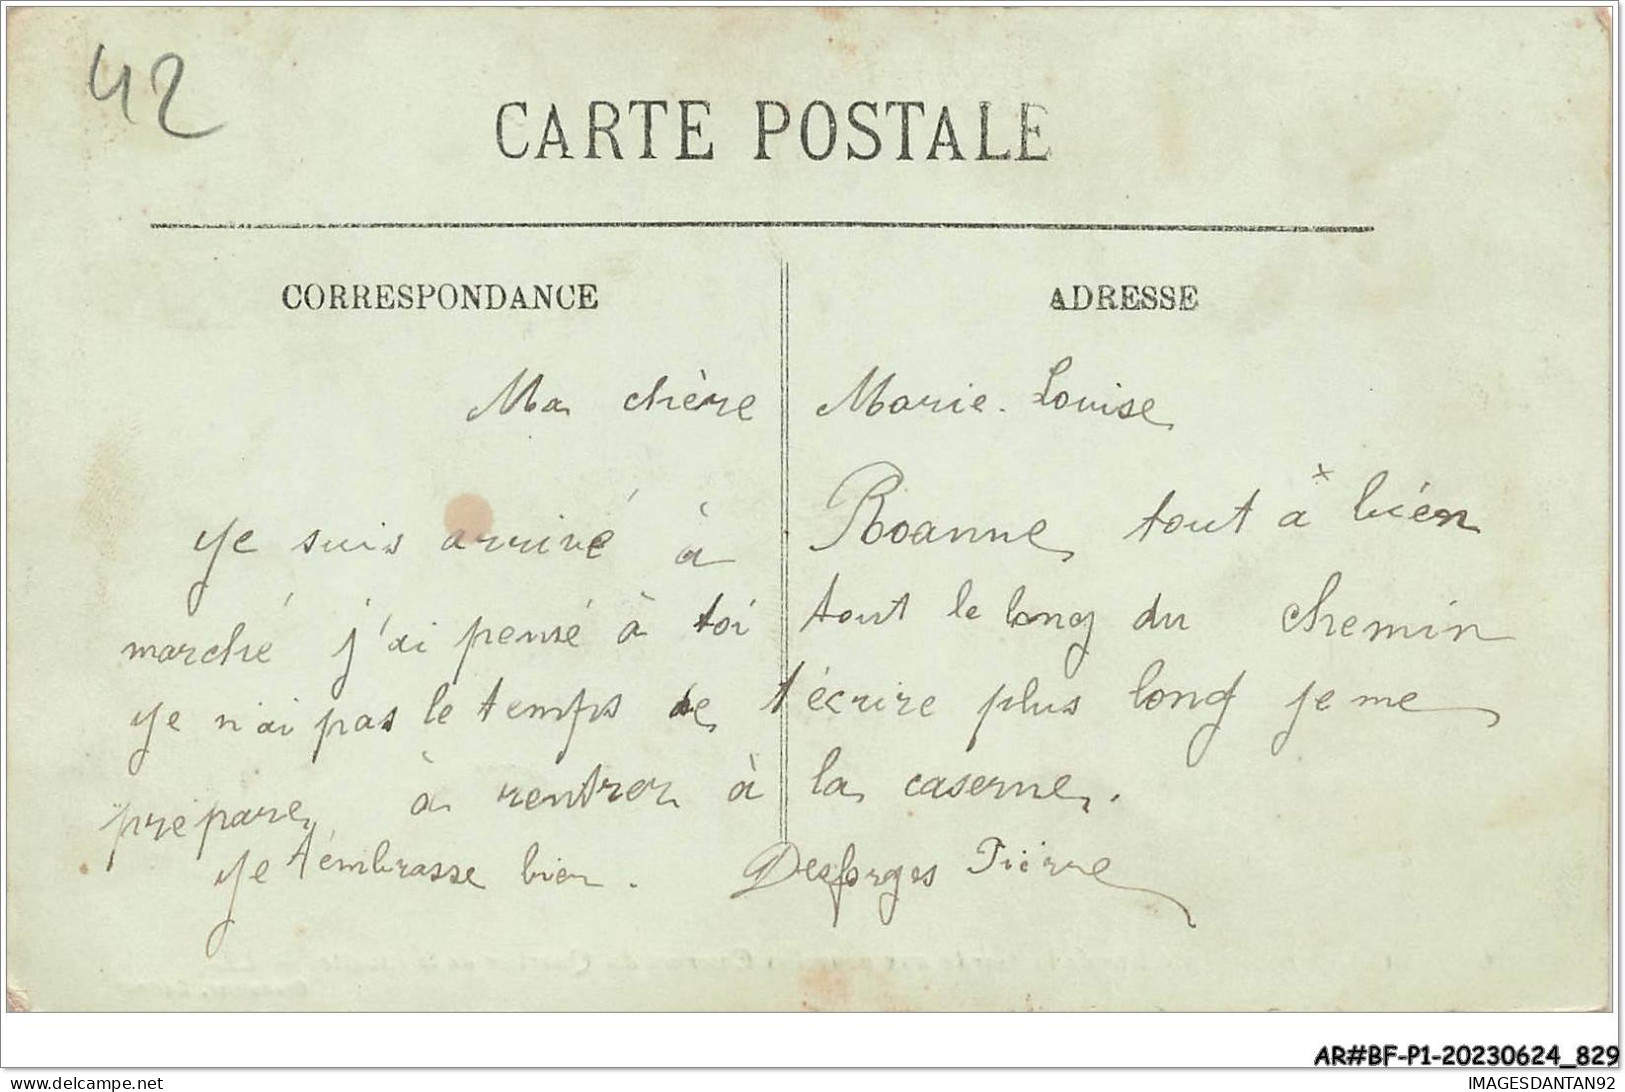 42
CARTE POSTALE
CORRESPONDANCE
ADRESSE
Ma chère Marie-Louise
Je suis arrivé à Roanne tout à bien
marché j'ai pensé à toi tout le long du chemin
je n'ai pas le temps de t'écrire plus long je me
prépare à rentrer à la caserne.
Je t'embrasse bien. Desforges Pierre
AR#BF-P1-20230624_829
delcampe.net
IMAGESDANTAN92